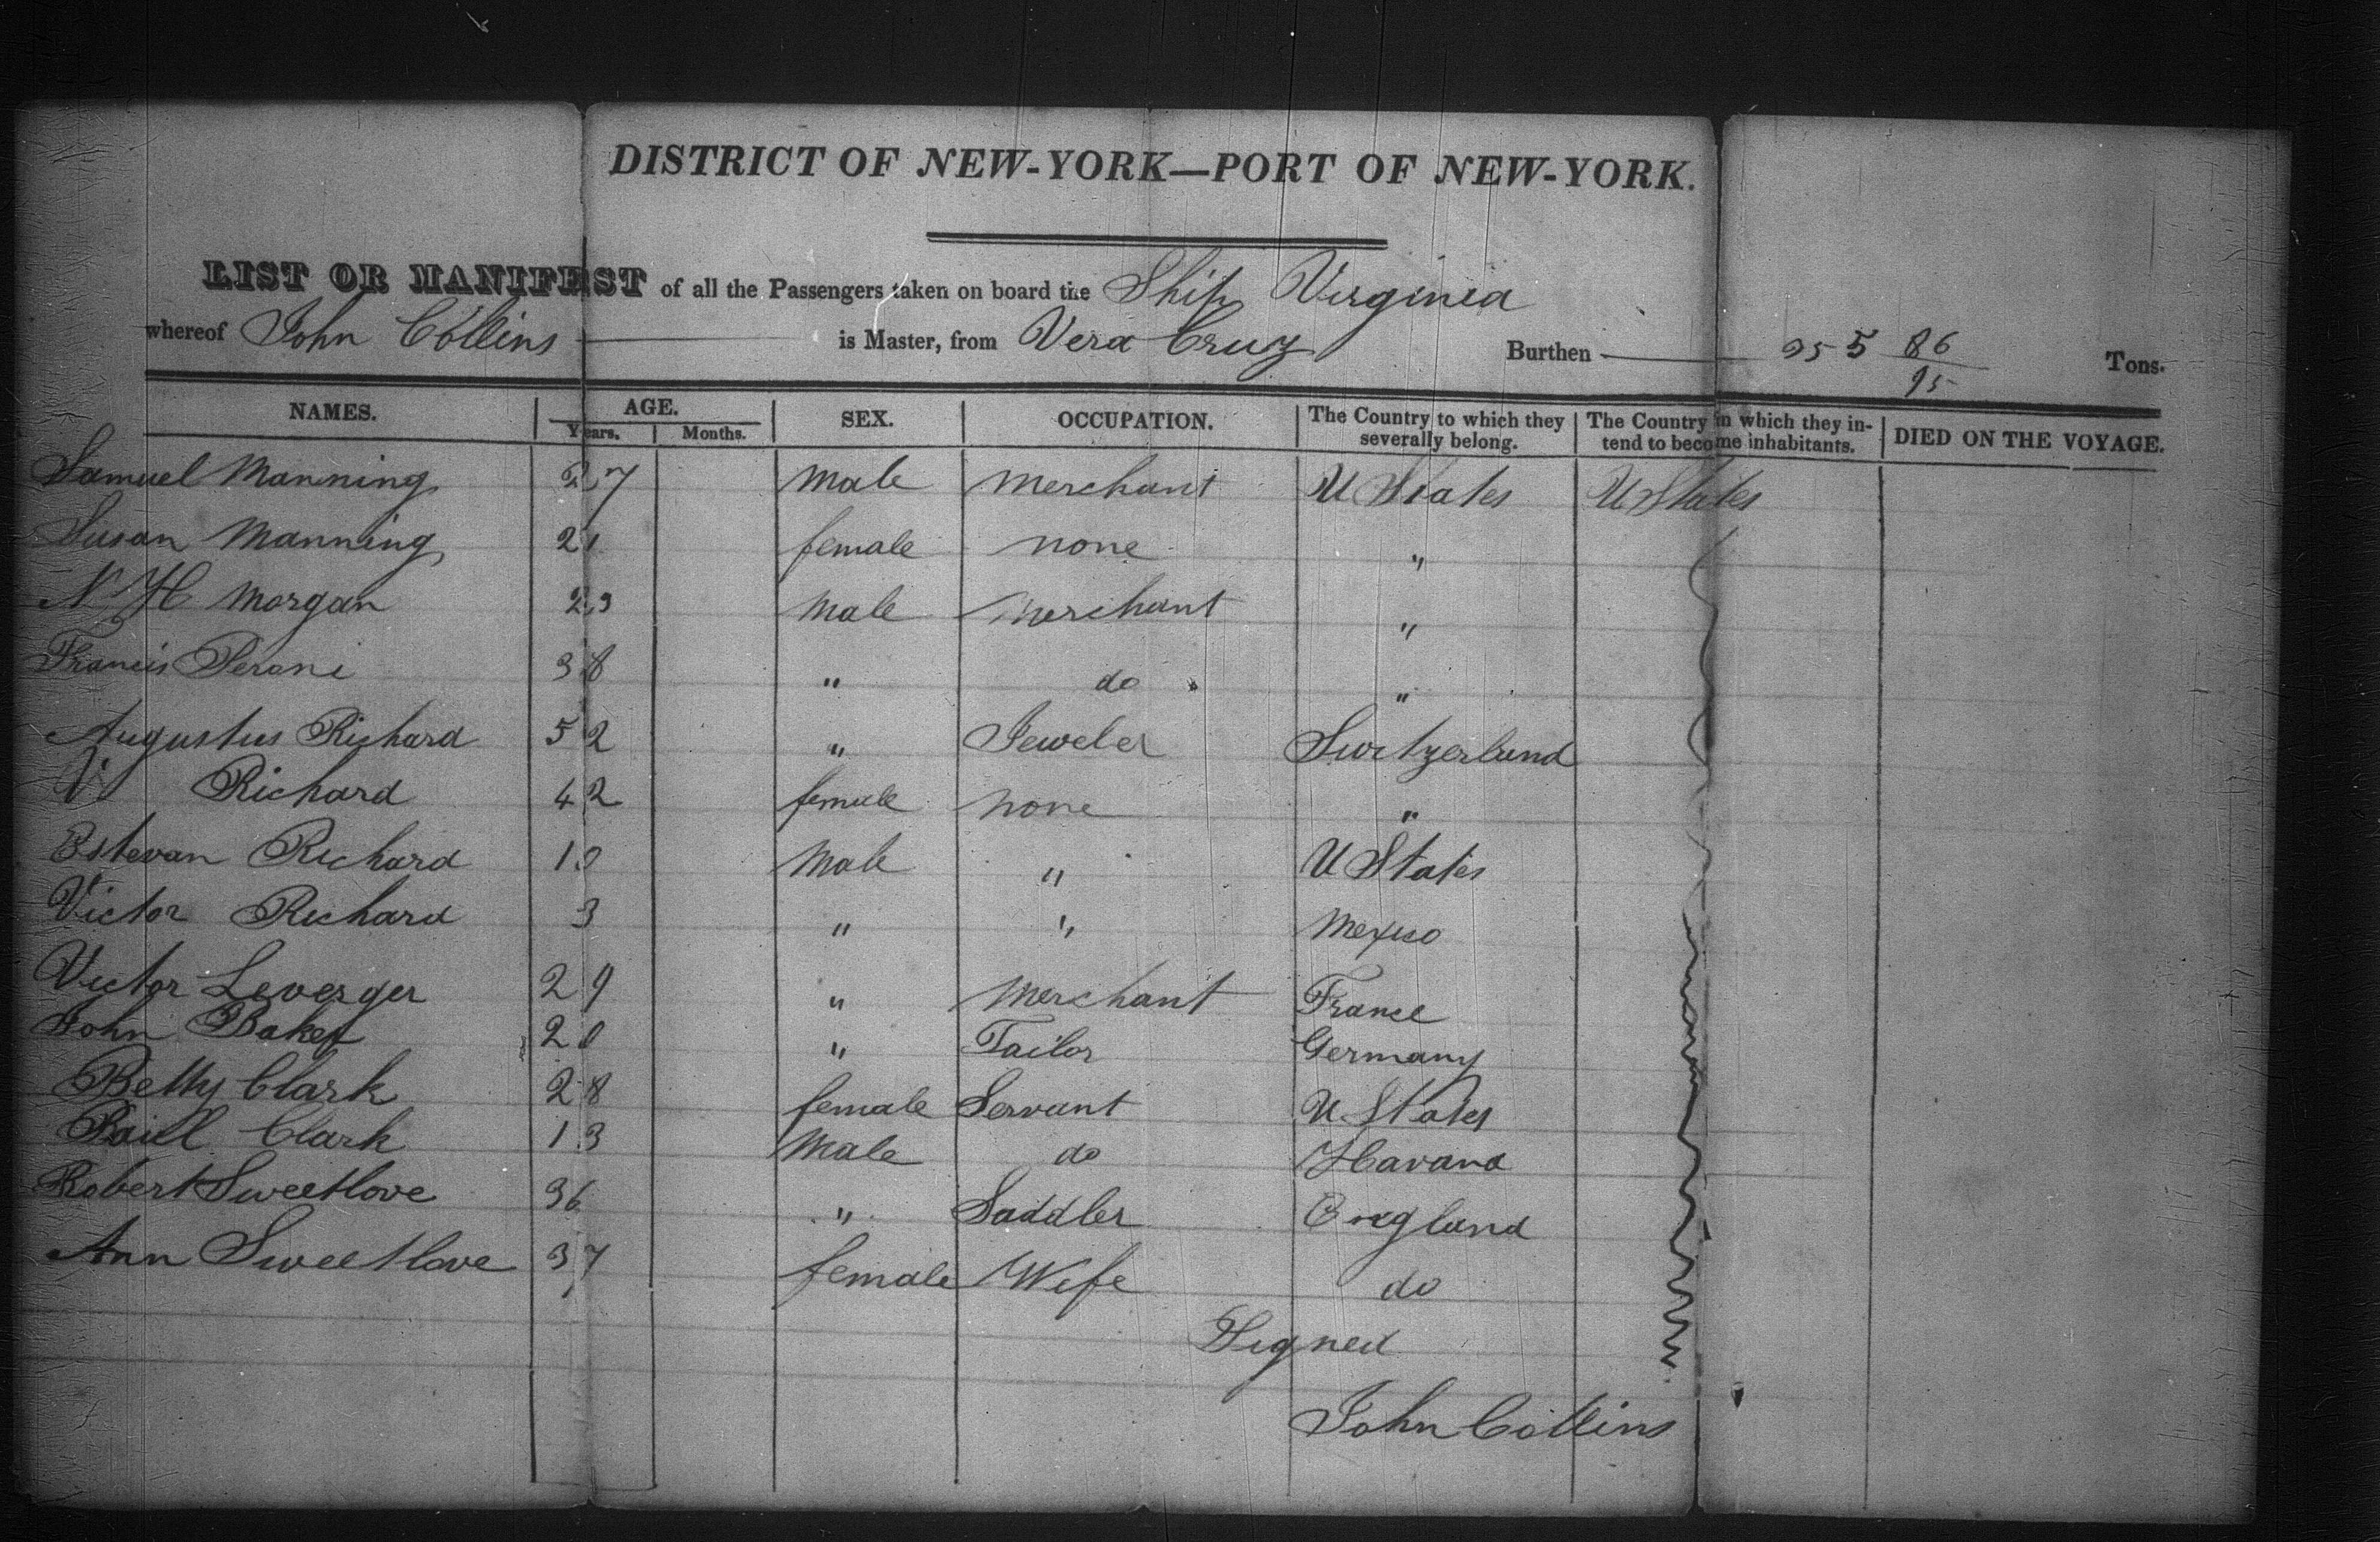 DISTRICT OF NEW-YORK—PORT OF NEW-YORK.
LIST OR MANIFEST of all the Passengers taken on board the Ship Virginia
whereof John Collins is Master, from Vera Cruz Burthen 355 86/95 Tons.
NAMES. AGE. SEX. OCCUPATION. The Country to which they severally belong. The Country in which they intend to become inhabitants. DIED ON THE VOYAGE.
Years. Months.
Samuel Manning 27 male merchant U States U States
Susan Manning 21 female none "
N H Morgan male merchant "
Francis Perani 38 " do "
Augustus Richard 52 " Jeweler Switzerland
V Richard 42 female none "
Estevan Richard male " U States
Victor Richard 3 " " Mexico
Victor Leverger 29 " merchant France
John Baker 20 " Tailor Germany
Betty Clark 28 female Servant U States
Paul Clark 13 male do Havana
Robert Sweetlove 36 " Saddler England
Ann Sweetlove 37 female Wife do
Signed
John Collins